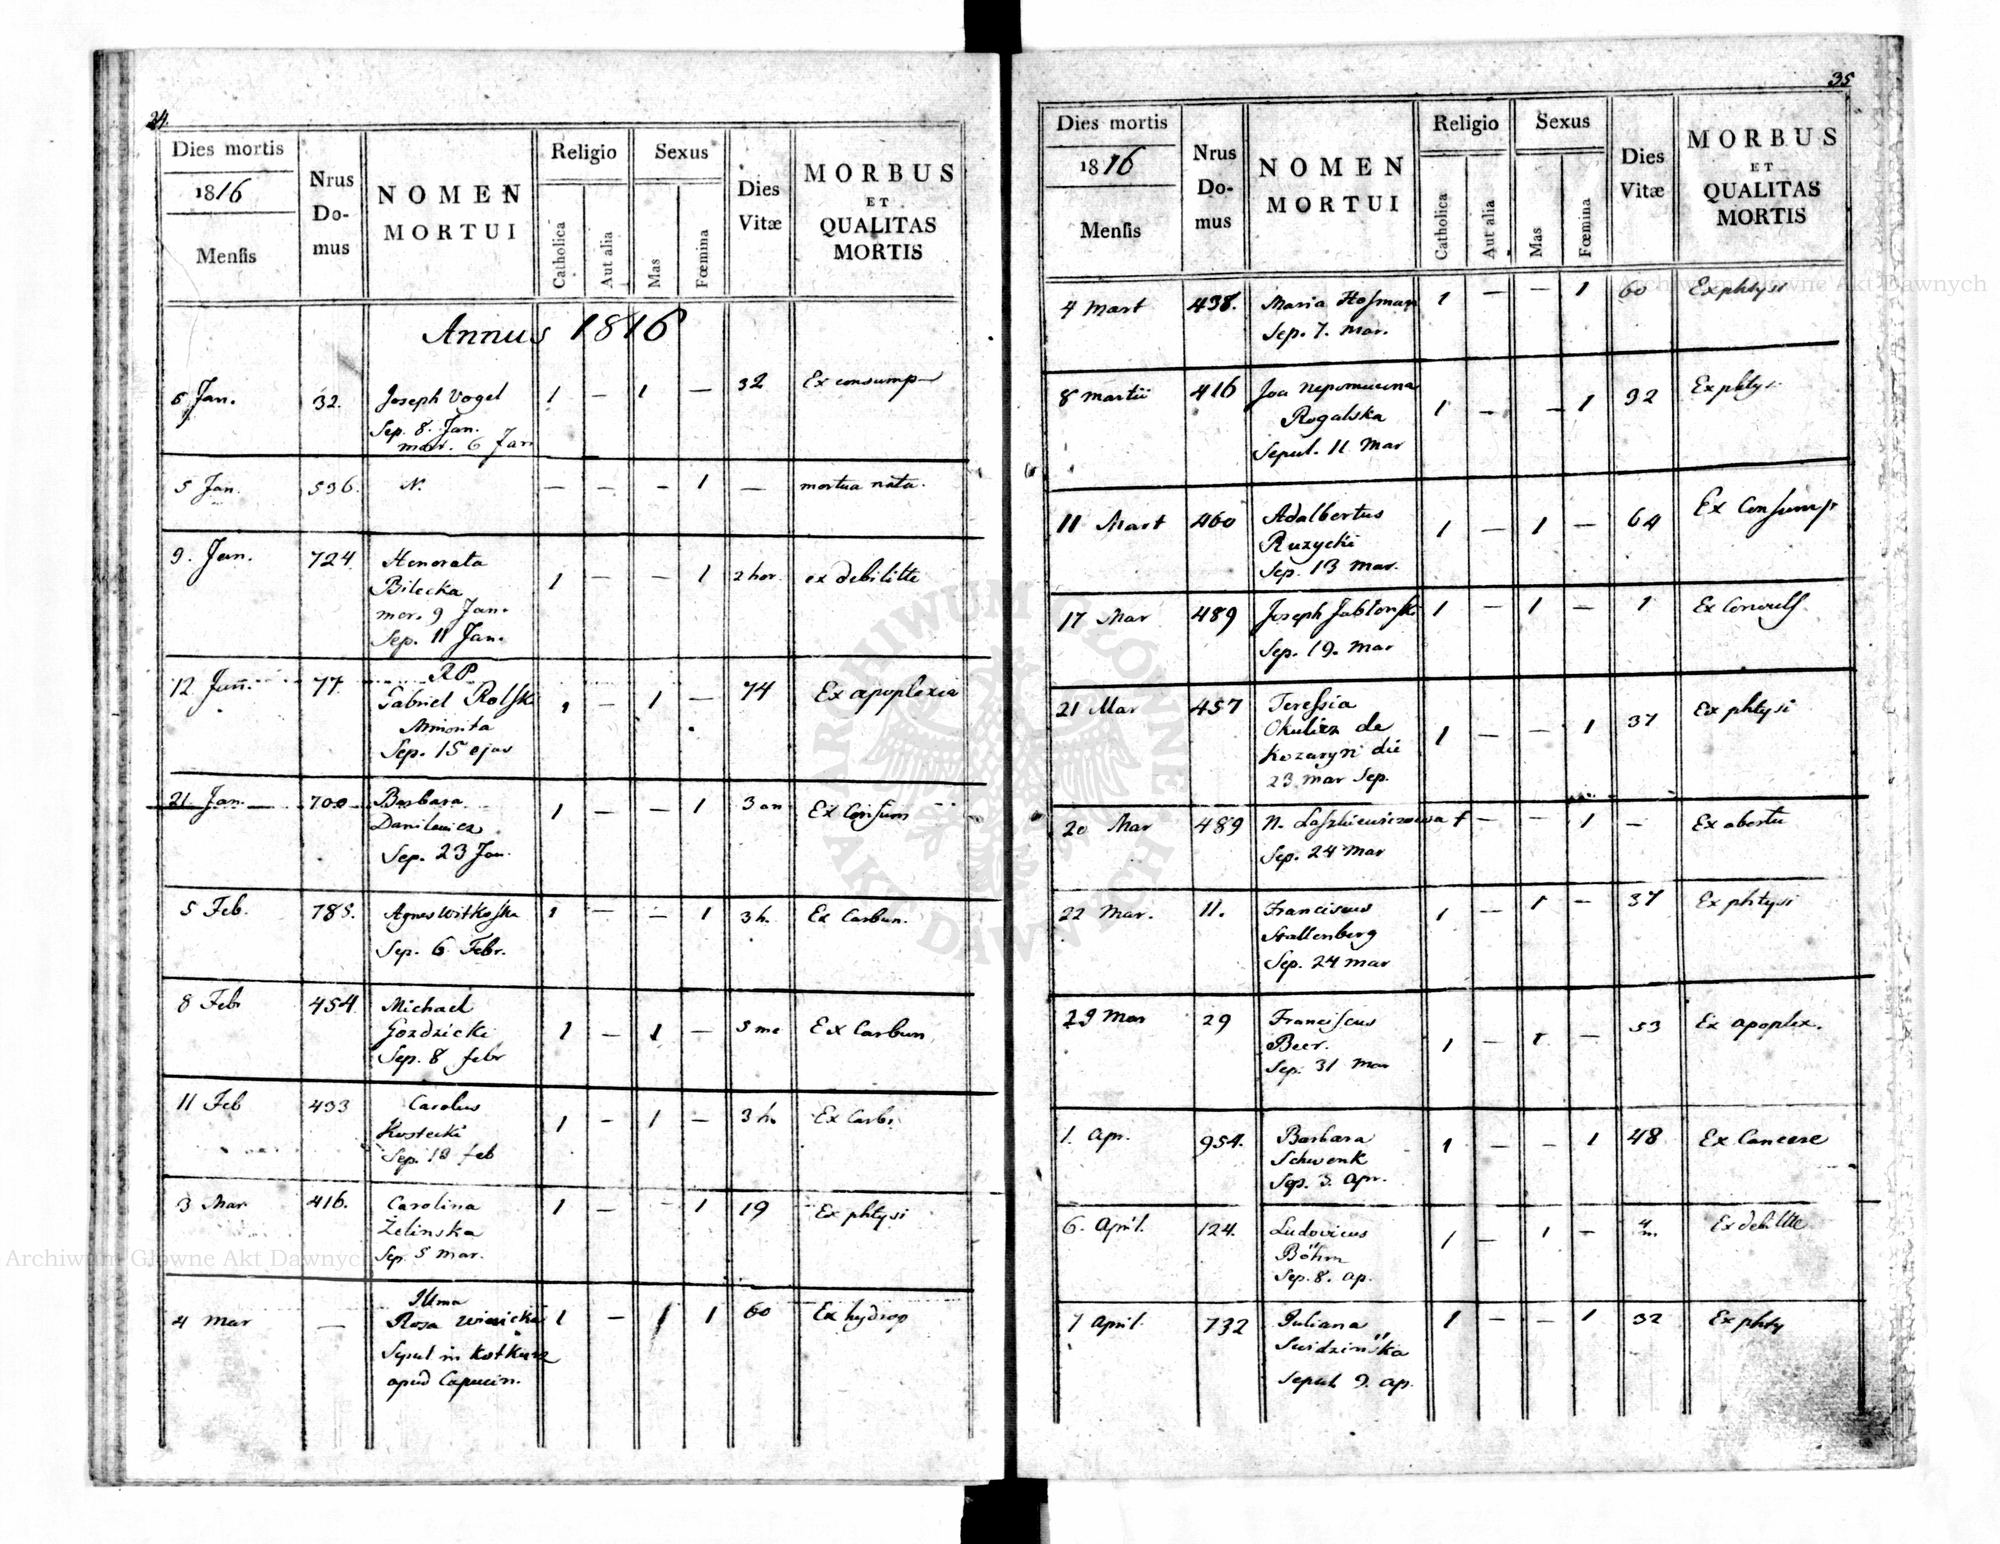 24.
Dies mortis
1816
Mensis
Nrus Domus
NOMEN MORTUI
Religio
Catholica
Aut alia
Sexus
Mas
Fœmina
Dies Vitæ
MORBUS ET QUALITAS MORTIS
Annus 1816
6 Jan. 32. Joseph Vogel 1 — 1 — 32 Ex consump
Sep. 8. Jan.
mor. 6 Jan
5 Jan. 596. N. — — — 1 — mortua nata.
9. Jan. 724 Honorata
Bilecka 1 — — 1 2 hor. ex debilitte
mor. 9 Jan.
Sep. 11 Jan.
RP
12 Jan. 77. Gabriel Rolski 1 — 1 — 74 Ex apoplexia
Minorita
Sep. 15 ejus
21 Jan. 700 Barbara 1 — — 1 3 an Ex Consum
Danilewicz
Sep. 23 Jan.
5 Feb. 785. Agnes Witkoska 1 — — 1 3 h. Ex Carbun.
Sep. 6 Febr.
8 Febr 454 Michael
Gozdzicki 1 — 1 — 3 me Ex Carbun
Sep. 8 febr
11 Feb 433 Carolus
Kostecki 1 — 1 — 3 h. Ex Carb.
Sep. 13 feb
3 Mar 416. Carolina 1 — — 1 19 Ex phtysi
Żelinska
Sep. 5 mar.
Illma
4 Mar — Rosa 1 — 1 1 60 Ex hydrop
Sepul in
apud Capucin.
35
Dies mortis
1816
Mensis
Nrus Domus
NOMEN MORTUI
Religio
Catholica
Aut alia
Sexus
Mas
Fœmina
Dies Vitæ
MORBUS ET QUALITAS MORTIS
4 Mart 438. Maria Hofman 1 — — 1 60 Ex phtysi
Sep. 7. Mar.
8 Martii 416 Joa Nepomucena 1 — — 1 32 Ex phtys.
Rogalska
Sepul. 11 Mar
11 Mart 460 Adalbertus 1 — 1 — 64 Ex Consump
Ruzycki
Sep. 13 Mar.
17 Mar 489 Joseph Jabłonski 1 — 1 — 1 Ex Convuls.
Sep. 19. Mar
21 Mar 457 Teressia
Okulicz de 1 — — 1 37 Ex phtysi
Kozaryn die
23 Mar Sep.
20 Mar 489 N. Laszkiewiczowa † — — 1 — Ex abortu
Sep. 24 Mar
22 Mar. 11. Franciscus 1 — 1 — 37 Ex phtysi
Stallenberg
Sep. 24 Mar
29 Mar 29 Franciscus
Beer. 1 — 1 — 53 Ex apoplex.
Sep. 31 Mar
1. Apr. 954. Barbara 1 — — 1 48 Ex Cancere
Schwenk
Sep. 3. Apr.
6. April. 124. Ludovicus 1 — 1 — 4 m. Ex debilitte
Böhm
Sep. 8. Ap.
7 April. 732 Juliana 1 — — 1 32 Ex phty
Swidzinska
Sepul. 9. Ap.
Archiwum Główne Akt Dawnych
Archiwum Główne Akt Dawnych
ARCHIWUM GŁÓWNE AKT DAWNYCH